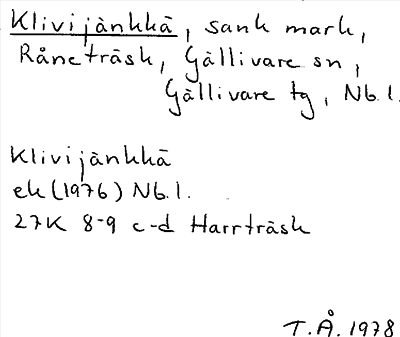 Klivijänkkä, sank mark,
Råneträsk, Gällivare sn,
Gällivare tg, Nb.l.
Klivijänkkä
ek (1976) Nb.l.
27K 8-9 c-d Harrträsk
T.Å. 1978